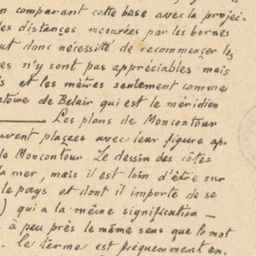 n comparant cette base avec la projec-
les distances mesurées par les bornes
ut donc nécessité de recommencer les
es n'y sont pas appréciables mais
s et les mètres seulement comme
toire de Belair qui est le méridien
Les plans de Moncontour
uvent placées avec leur figure ap-
de Moncontour Le dessin des côtés
la mer, mais il est loin d'être sur
le pays et dont il importe de se
) qui a la même signification —
à peu près le même sens que le mot
. le terme est fréquemment en-